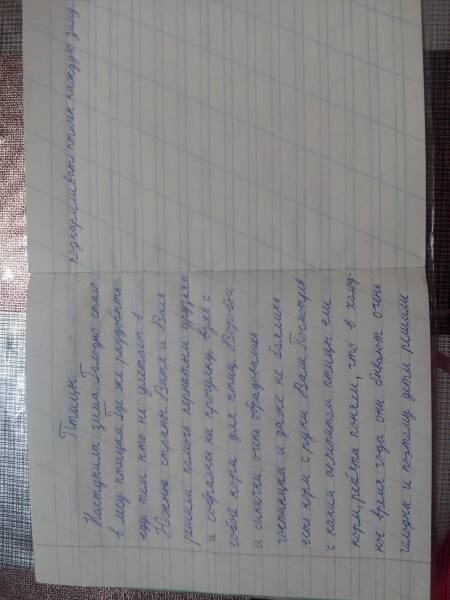 Птицы
Наступила зима. Голодно стало
в лесу птицам. Где же раздобыть
еду тем кто не улетает в
Южные страны. Витя и Валя
решили помочь пернатым друзьям
и собрались на прогулку, взяв с
собой корм для птиц. Воробьи
и синички очень обрадовались
гостинцам и даже не боялись
есть корм с руки Вали. Посмотрев
с каким аппетитом птицы ели
корм, ребята поняли, что в холод-
ное время года они бывают очень
голодны и поэтому дети решили
подкармливать птичек каждую зиму.